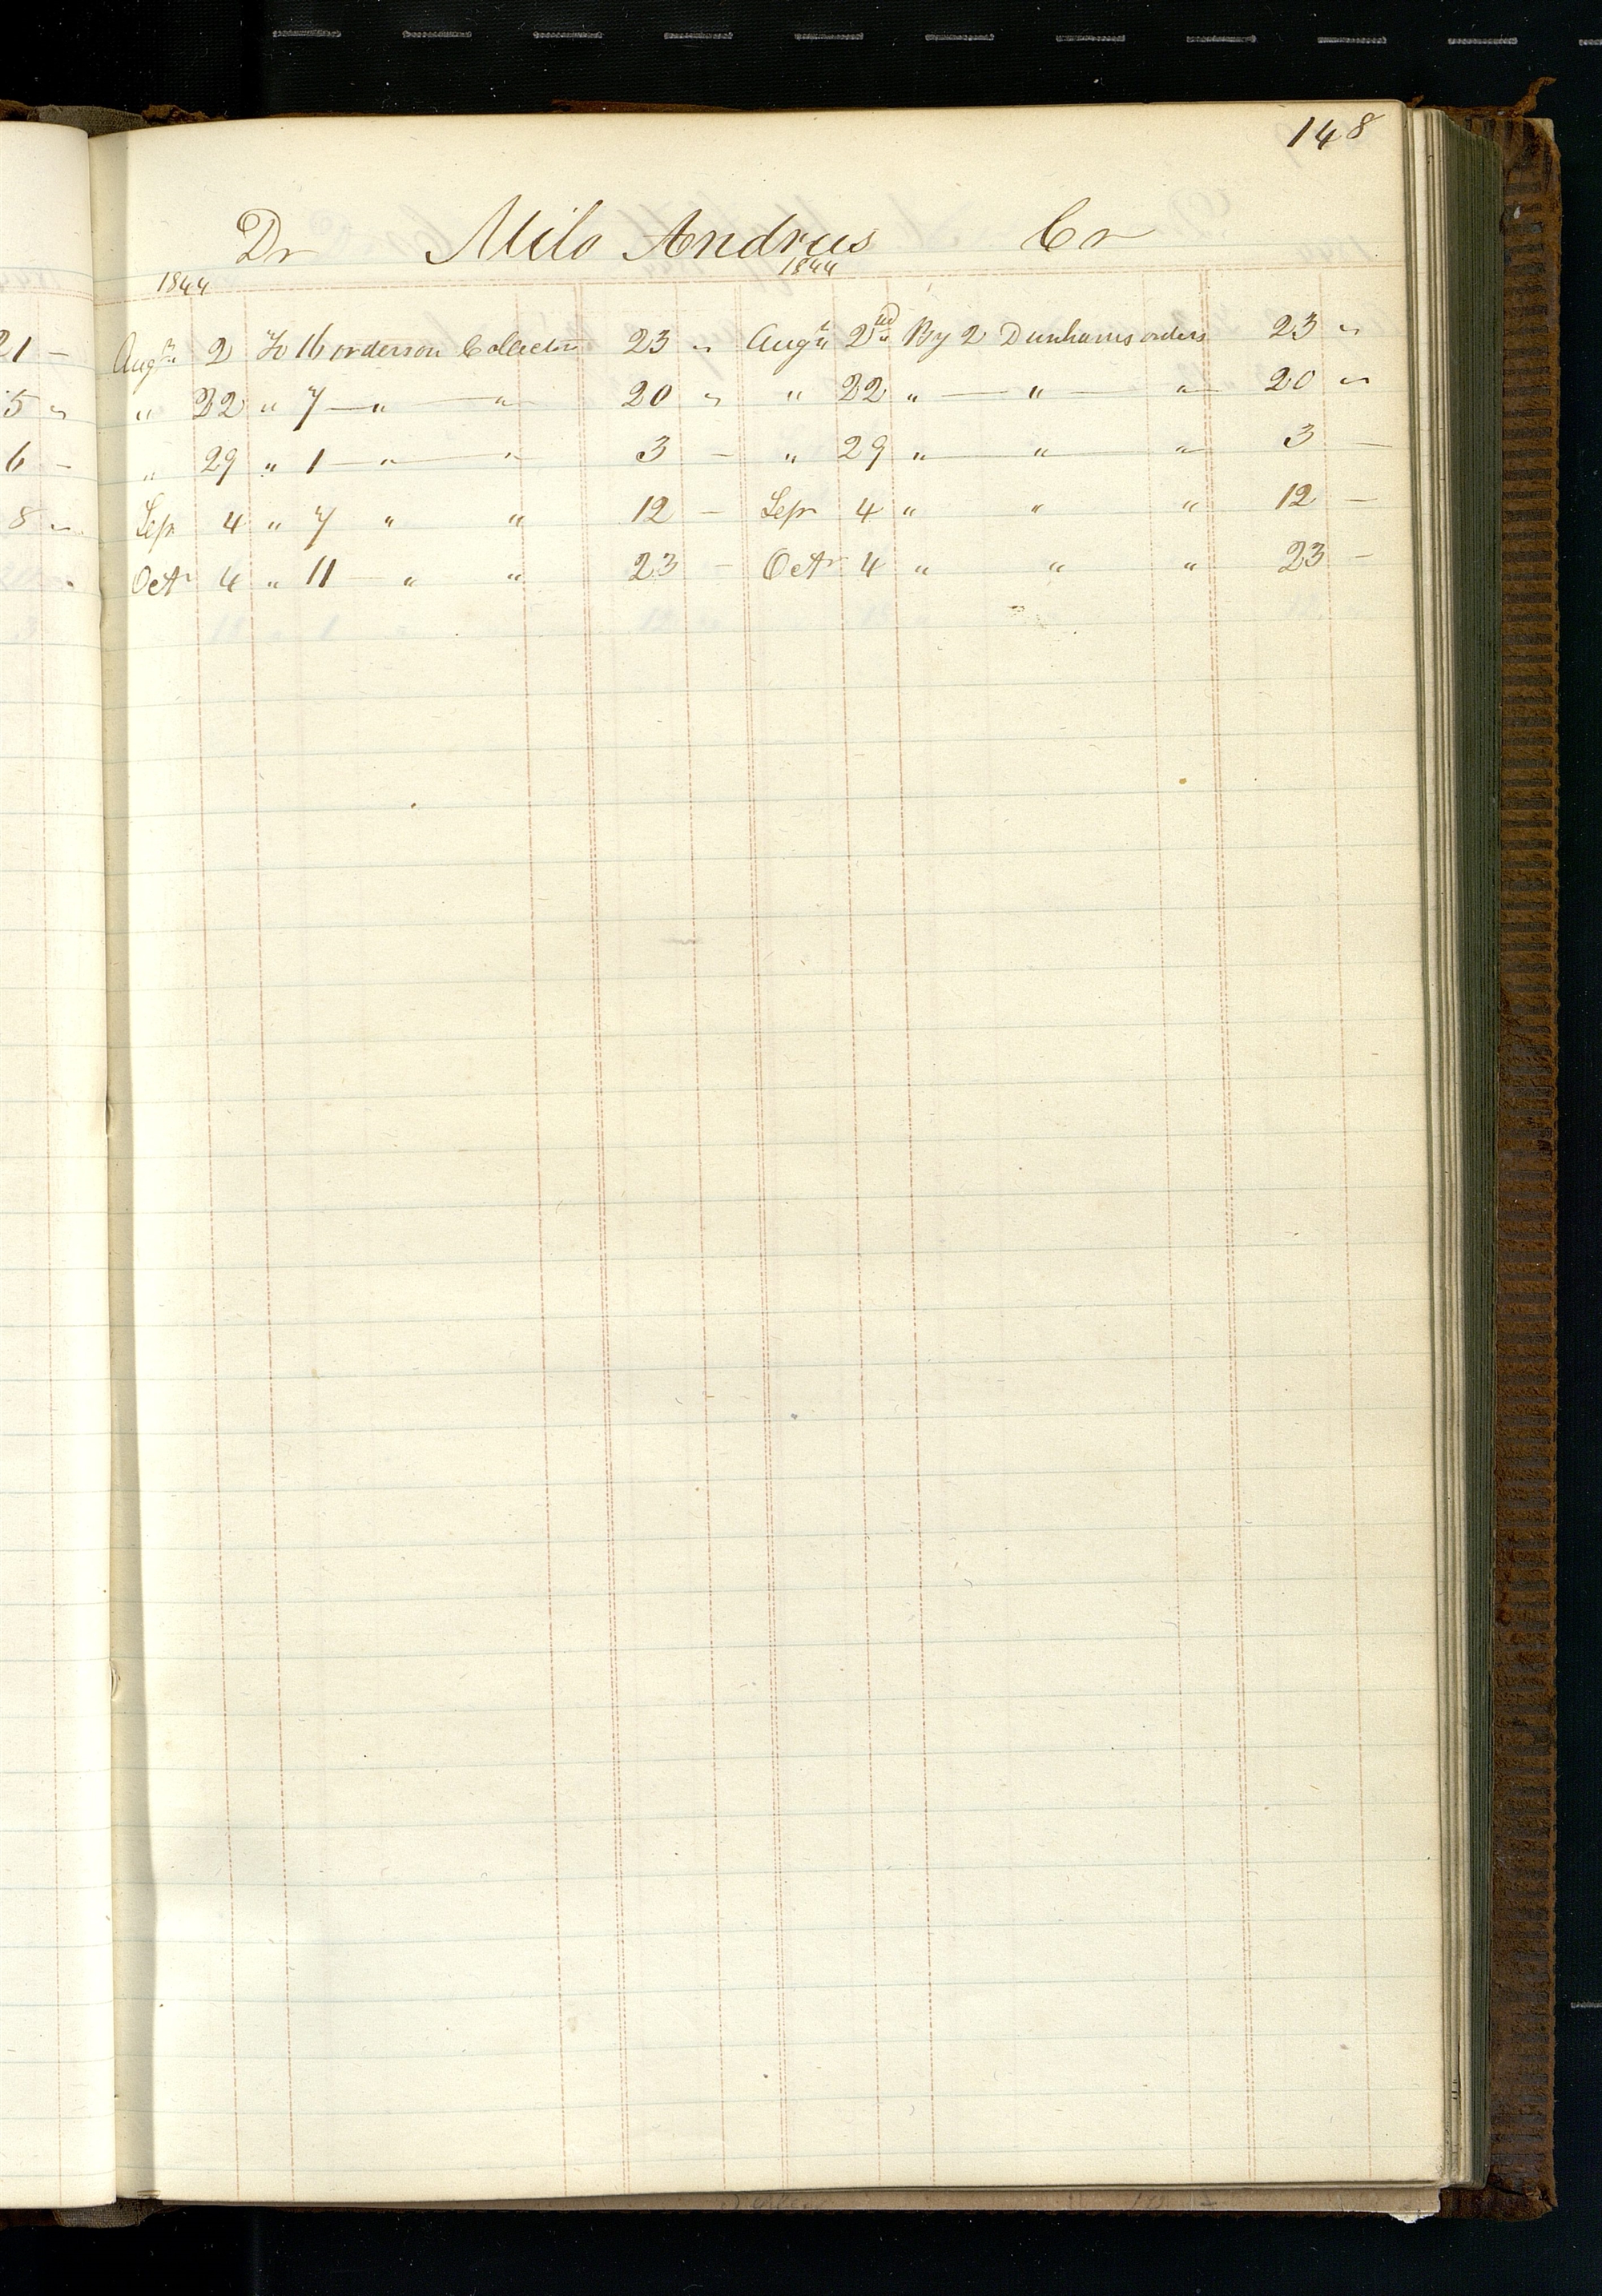 148
Dr Milo Andrus Cr
1844 1844
21 - Augt 2 To 16 orders on Collector 23 " Augt 2nd By 2 Dunhams orders 23 "
5 " " 22 " 7 — " — " 20 " " 22 " — " — " 20 "
6 - " 29 " 1 — " — " 3 - " 29 " — " — " 3 -
8 " Sep 4 " 7 " " 12 - Sep 4 " " " 12 -
Oct 4 " 11 — " " 23 - Oct 4 " " " 23 -